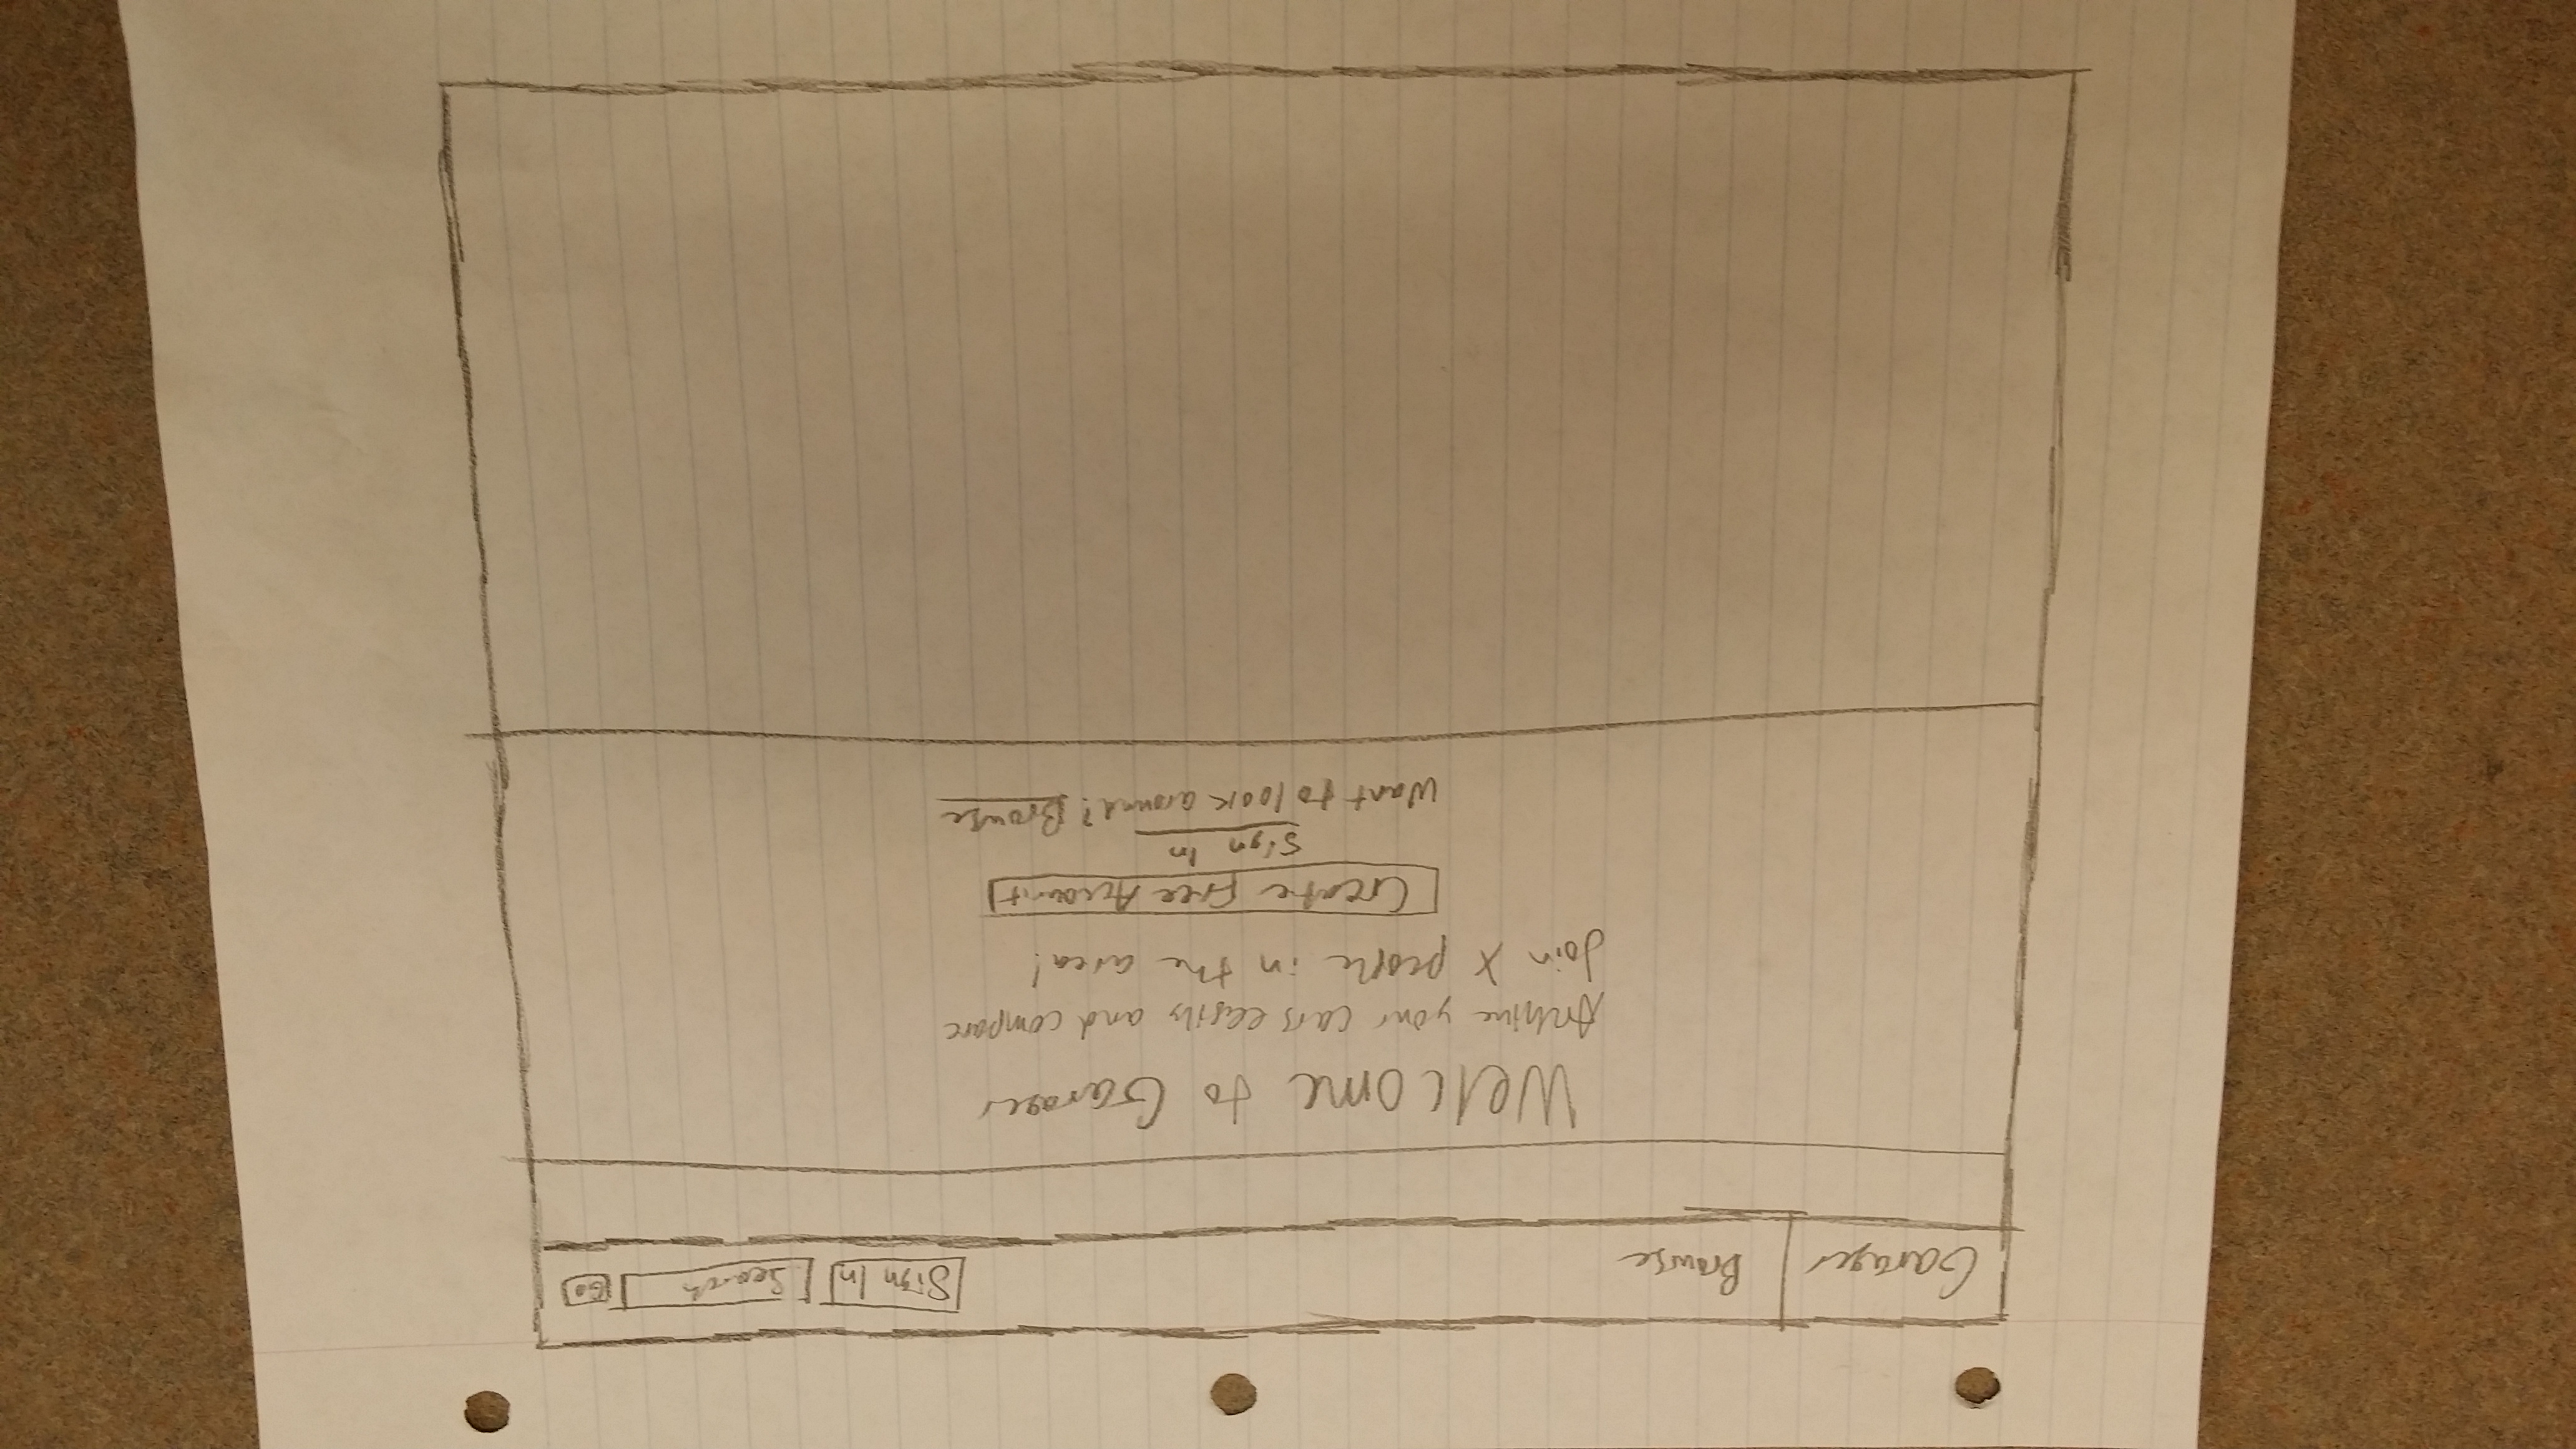 Garager Browse Sign In Search Go
Welcome to Garager
Archive your cars easily and compare
Join X people in the area!
Create Free Account
Sign In
Want to look around? Browse